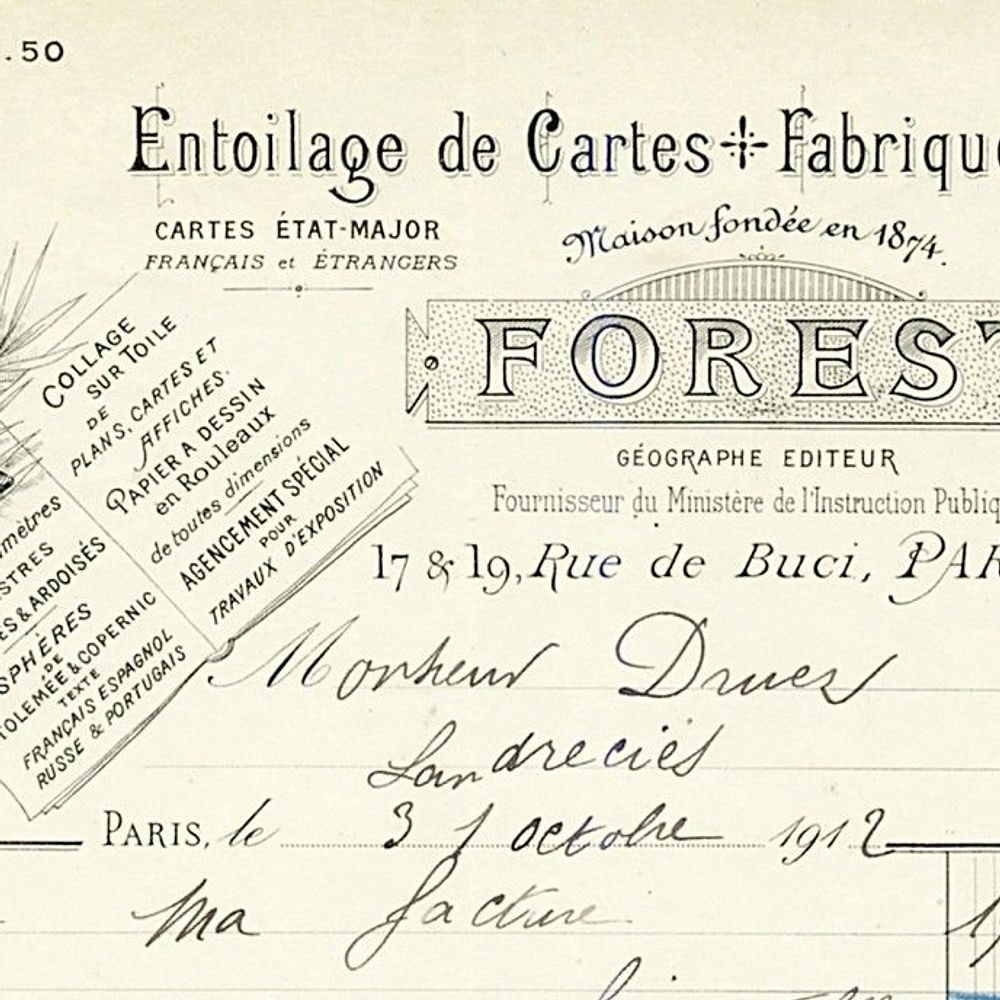 .50
Entoilage de Cartes Fabrique
CARTES ÉTAT-MAJOR
FRANÇAIS et ÉTRANGERS
Maison fondée en 1874.
FOREST
GÉOGRAPHE EDITEUR
Fournisseur du Ministère de l'Instruction Publiq
17 & 19, Rue de Buci, PAR
COLLAGE
SUR TOILE
DE
PLANS, CARTES ET
AFFICHES.
PAPIER A DESSIN
en Rouleaux
de toutes dimensions
AGENCEMENT SPÉCIAL
POUR
TRAVAUX D'EXPOSITION
mètres
STRES
ES & ARDOISÉS
SPHÈRES
DE
TOLEMÉE & COPERNIC
TEXTE
FRANÇAIS ESPAGNOL
RUSSE & PORTUGAIS
Monsieur
Landrecies
PARIS, le 31 octobre 1912
Ma facture